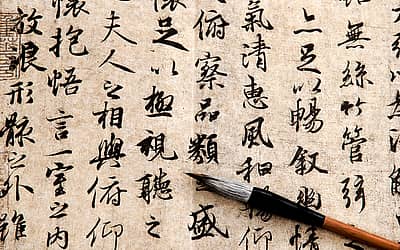 無絲竹管弦
足以暢敘幽
氣清惠風和暢仰
俯察品類之盛
足以極視聽之
夫人之相與俯仰
懷抱悟言一室之內
放浪形骸之外雖